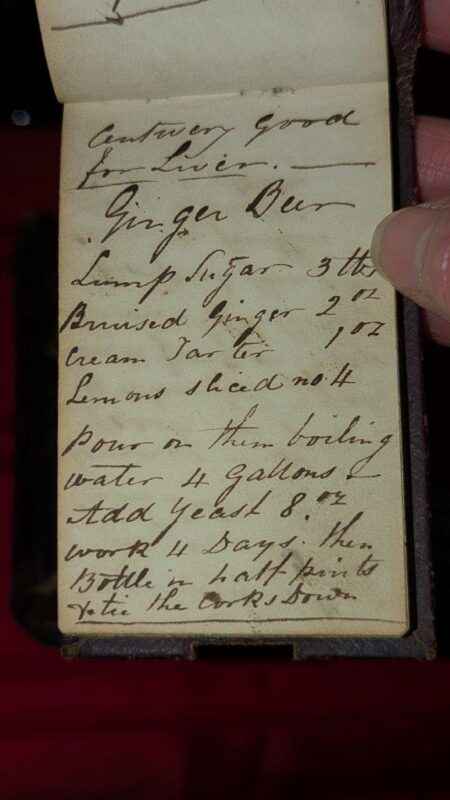 Centuery Good
for Liver. —
Ginger Beer
Lump Sugar 3 lbs
Bruised Ginger 2 oz
Cream Tarter 1 oz
Lemons sliced no. 4
Pour on them boiling
water 4 Gallons –
Add Yeast 8 oz
work 4 Days. then
Bottle in half pints
& tie the Corks Down